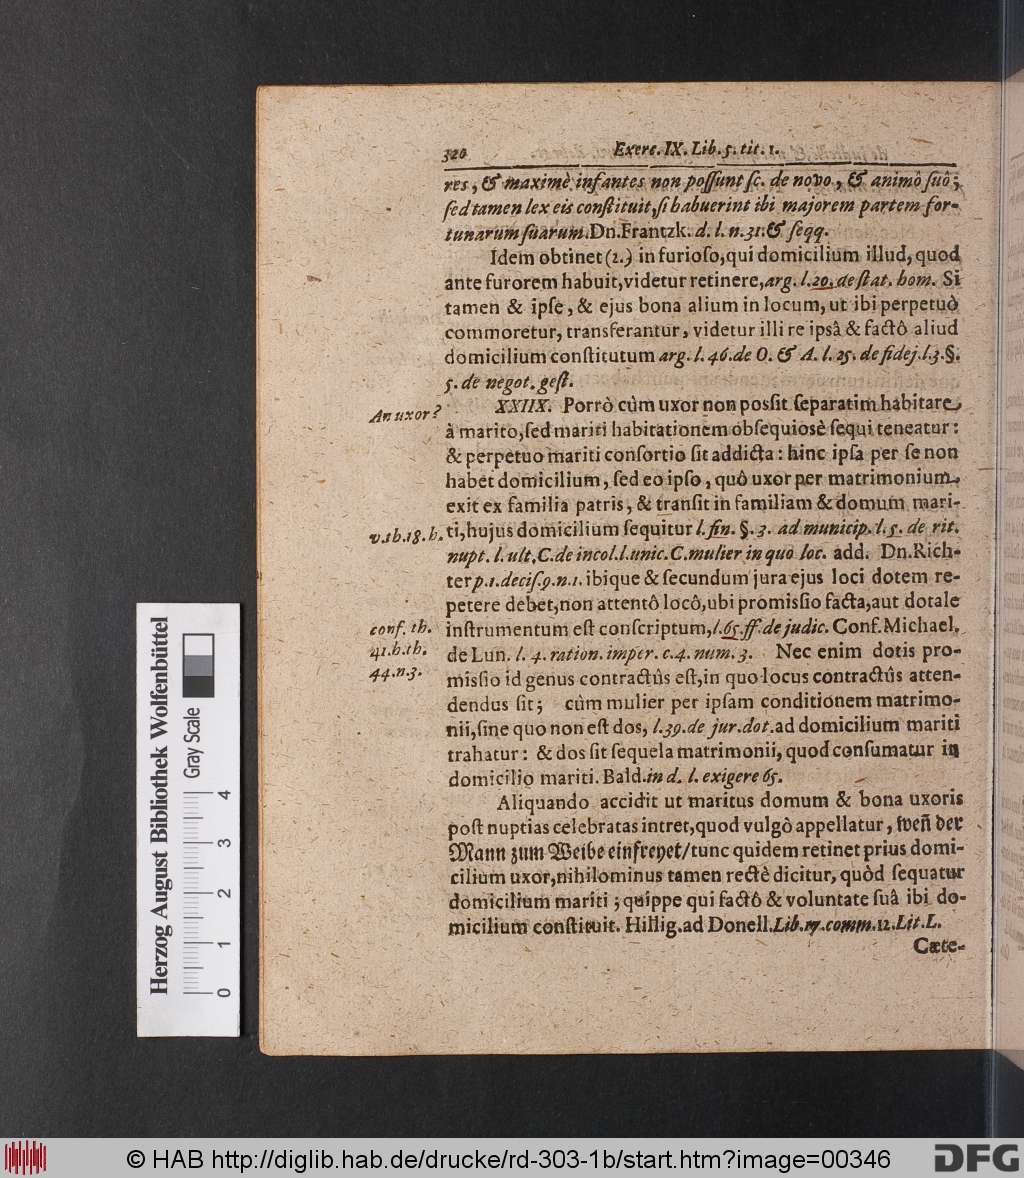 320 Exerc. IX. Lib. 5. tit. 1.
res, & maximè infantes non poſſunt ſc. de novo, & animô ſuô;
ſed tamen lex eis conſtituit, ſi habuerint ibi majorem partem for-
tunarum ſuarum. Dn. Frantzk. d. l. n. 31. & ſeqq.
Idem obtinet (2.) in furioſo, qui domicilium illud, quod
ante furorem habuit, videtur retinere, arg. l. 20. de ſtat. hom. Si
tamen & ipſe, & ejus bona alium in locum, ut ibi perpetuò
commoretur, transferantur, videtur illi re ipsâ & factô aliud
domicilium conſtitutum arg. l. 46. de O. & A. l. 25. de fidej. l. 3. §.
5. de negot. geſt.
An uxor?
XXIIX. Porrò cùm uxor non poſſit ſeparatim habitare
à marito, ſed mariti habitationem obſequiosè ſequi teneatur:
& perpetuo mariti conſortio ſit addicta: hinc ipſa per ſe non
habet domicilium, ſed eo ipſo, quô uxor per matrimonium
exit ex familia patris, & tranſit in familiam & domum mari-
v. th. 18. h.
ti, hujus domicilium ſequitur l. fin. §. 3. ad municip. l. 5. de rit.
nupt. l. ult. C. de incol. l. unic. C. mulier in quo loc. add. Dn. Rich-
ter p. 1. deciſ. 9. n. 1. ibique & ſecundum jura ejus loci dotem re-
petere debet, non attentô locô, ubi promiſſio facta, aut dotale
conf. th.
41. h. th.
44. n. 3.
inſtrumentum eſt conſcriptum, l. 65. ff. de judic. Conf. Michael.
de Lun. l. 4. ration. imper. c. 4. num. 3. Nec enim dotis pro-
miſſio id genus contractûs eſt, in quo locus contractûs atten-
dendus ſit; cùm mulier per ipſam conditionem matrimo-
nii, ſine quo non eſt dos, l. 39. de jur. dot. ad domicilium mariti
trahatur: & dos ſit ſequela matrimonii, quod conſumatur in
domicilio mariti. Bald. in d. l. exigere 65.
Aliquando accidit ut maritus domum & bona uxoris
poſt nuptias celebratas intret, quod vulgò appellatur, wen̄ der
Mann zum Weibe einfreyet / tunc quidem retinet prius domi-
cilium uxor, nihilominus tamen rectè dicitur, quòd ſequatur
domicilium mariti; quippe qui factô & voluntate ſuâ ibi do-
micilium conſtituit. Hillig. ad Donell. Lib. 17. comm. 12. Lit. L.
Cæte-
Herzog August Bibliothek Wolfenbüttel
Gray Scale
0 1 2 3 4
© HAB http://diglib.hab.de/drucke/rd-303-1b/start.htm?image=00346
DFG